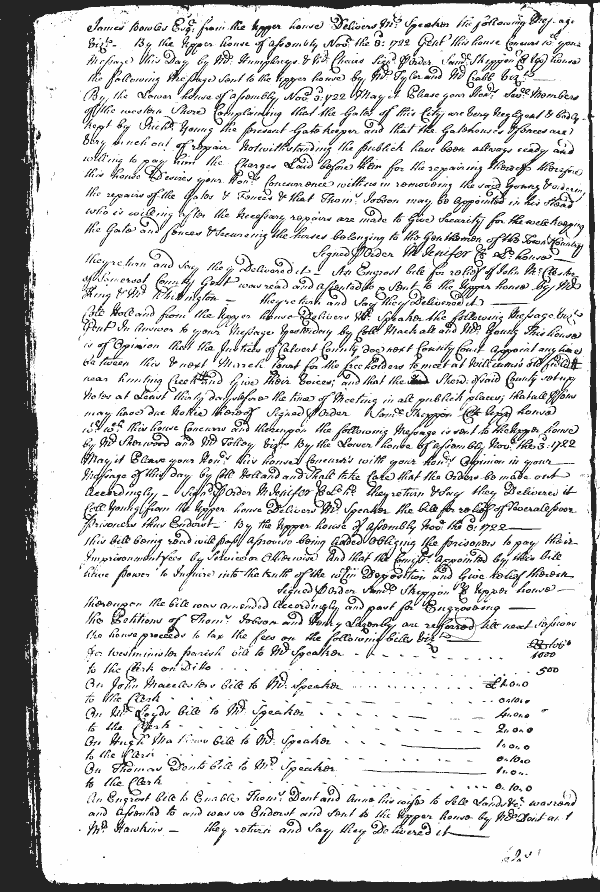 James Bowles Esqr. from the upper house Delivers Mr. Speaker the following Message
Vizt. By the Upper house of assembly Novr. the 3: 1722 Gent this house Concurs to your
Message this day by Mr. Humphreys & Mr. Signd Order Saml. Skippon Cl Up house
the following Message sent to the upper house by Mr. Tylor and Mr. Cabb Vizt.
By the Lower house of assembly Nov. 3. 1722 May it Please your Honrs. Sevl. Members
of the western Shore Complaining that the Gates of this City are very Negligent & badly
kept by Richd. Young the present Gate keeper and that the Gatehouses & fences are
very much out of repair Notwithstanding the publick have been always ready and
willing to pay him the Charges Laid before them for the repairing thereof therefore
this house Desires your Honrs. Concurrence with us in removing the said Young &
the repairs of the Gates & Fences & that Thoms. Jobson may be Appointed in his stead
who is willing after the Necessary repairs are made to Give Security for the well keeping
the Gate and fences & Securing the horses belonging to the Gentlemen of the Town & Country
Signed Order M Jenifer Cl Lo house
they return and say they Delivered it - An Engrost bill for relief of John
of Somerset County Gent was read and assented to & Sent to the upper house by Mr.
King & Mr. Whittington - they return and Say they Delivered it
Coll Holland from the upper house Delivers Mr. Speaker the following Message Vizt.
Gent In Answer to your Message Yesterday by Coll Mackall and Mr. Young This house
is of Opinion that the Justices of Calvert County doe next County Court Appoint any time
between this & next March Court for the freeholders to meet at Williams's old field
near hunting Creek and Give their Voices; and that the Sherr. of said County set up
Notes at Least thirty days before the time of Meeting in all publick places, that all persons
may have due Notice thereof Signed Order Saml. Skippon Cl Upper house
wth. wch. this house Concurs and thereupon the following Message is sent to the upper house
by Mr. Sherwood and Mr. Tolley Vizt. By the Lower house of assembly Novr. the 3. 1722
May it Please your Honrs. this house Concurs with your Honrs. Opinion in your
Message of this day by Coll Holland and Shall take Care that the Orders be made out
Accordingly - Signd Order M Jenifer Cl Lo h. they return & Say they Delivered it
Coll Young from the upper house Delivers Mr. Speaker the bill for relief of Several poor
prisoners thus Endorst - By the Upper house of Assembly Novr. the 3: 1722
this bill being read will pass a proviso being added Obliging the prisoners to pay their
Imprisonment fees by Service or Otherwise And that the Comrs. appointed by this bill
have power to Inquire into the truth of the wthin Deposition and Give relief therein
Signed Order Saml. Skippon Cl upper house
thereupon the bill was amended Accordingly and past for Engrossing
the Petitions of Thoms. Jobson and Henry Lazenby are referred till next Sessions
the house proceeds to tax the fees on the following bills Vizt.
for Westminster Parish bill to Mr. Speaker 1000
to the Clerk on Ditto 500
On John bill to Mr. Speaker £1.0.0
to the Clerk 0.10.0
On Mr. Loyds bill to Mr. Speaker 4.0.0
to the Clerk 2.0.0
On Hugh Mathews bill to Mr. Speaker 1.0.0
to the Clerk 0.10.0
On Thomas Donts bill to Mr. Speaker 1.0.0
to the Clerk 0.10.0
An Engrost bill to Enable Thoms. Dont and Anne his wife to Sell Lands &c. was read
and assented to and was so Endorst and sent to the Upper house by Mr. Dont and
Mr. Hawkins - they return and Say they Delivered it